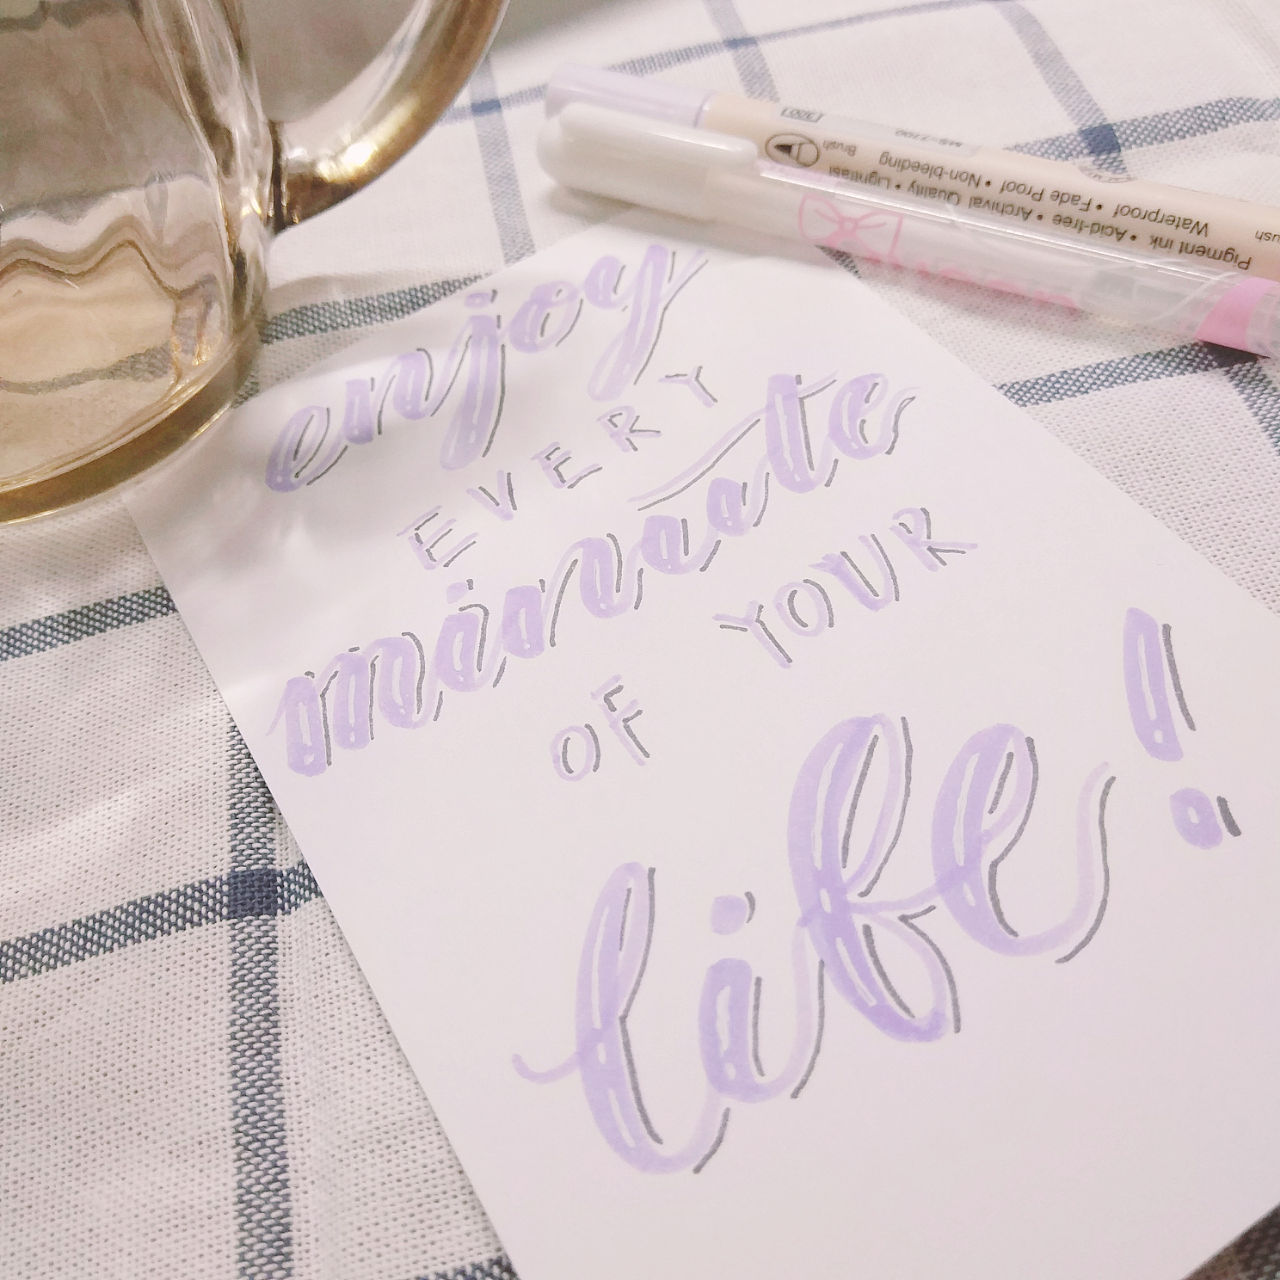 enjoy
EVERY
minute
OF YOUR
life!
Pigment ink • Acid-free • Archival Quality • Lightfast
Waterproof • Fade Proof • Non-bleeding
Brush